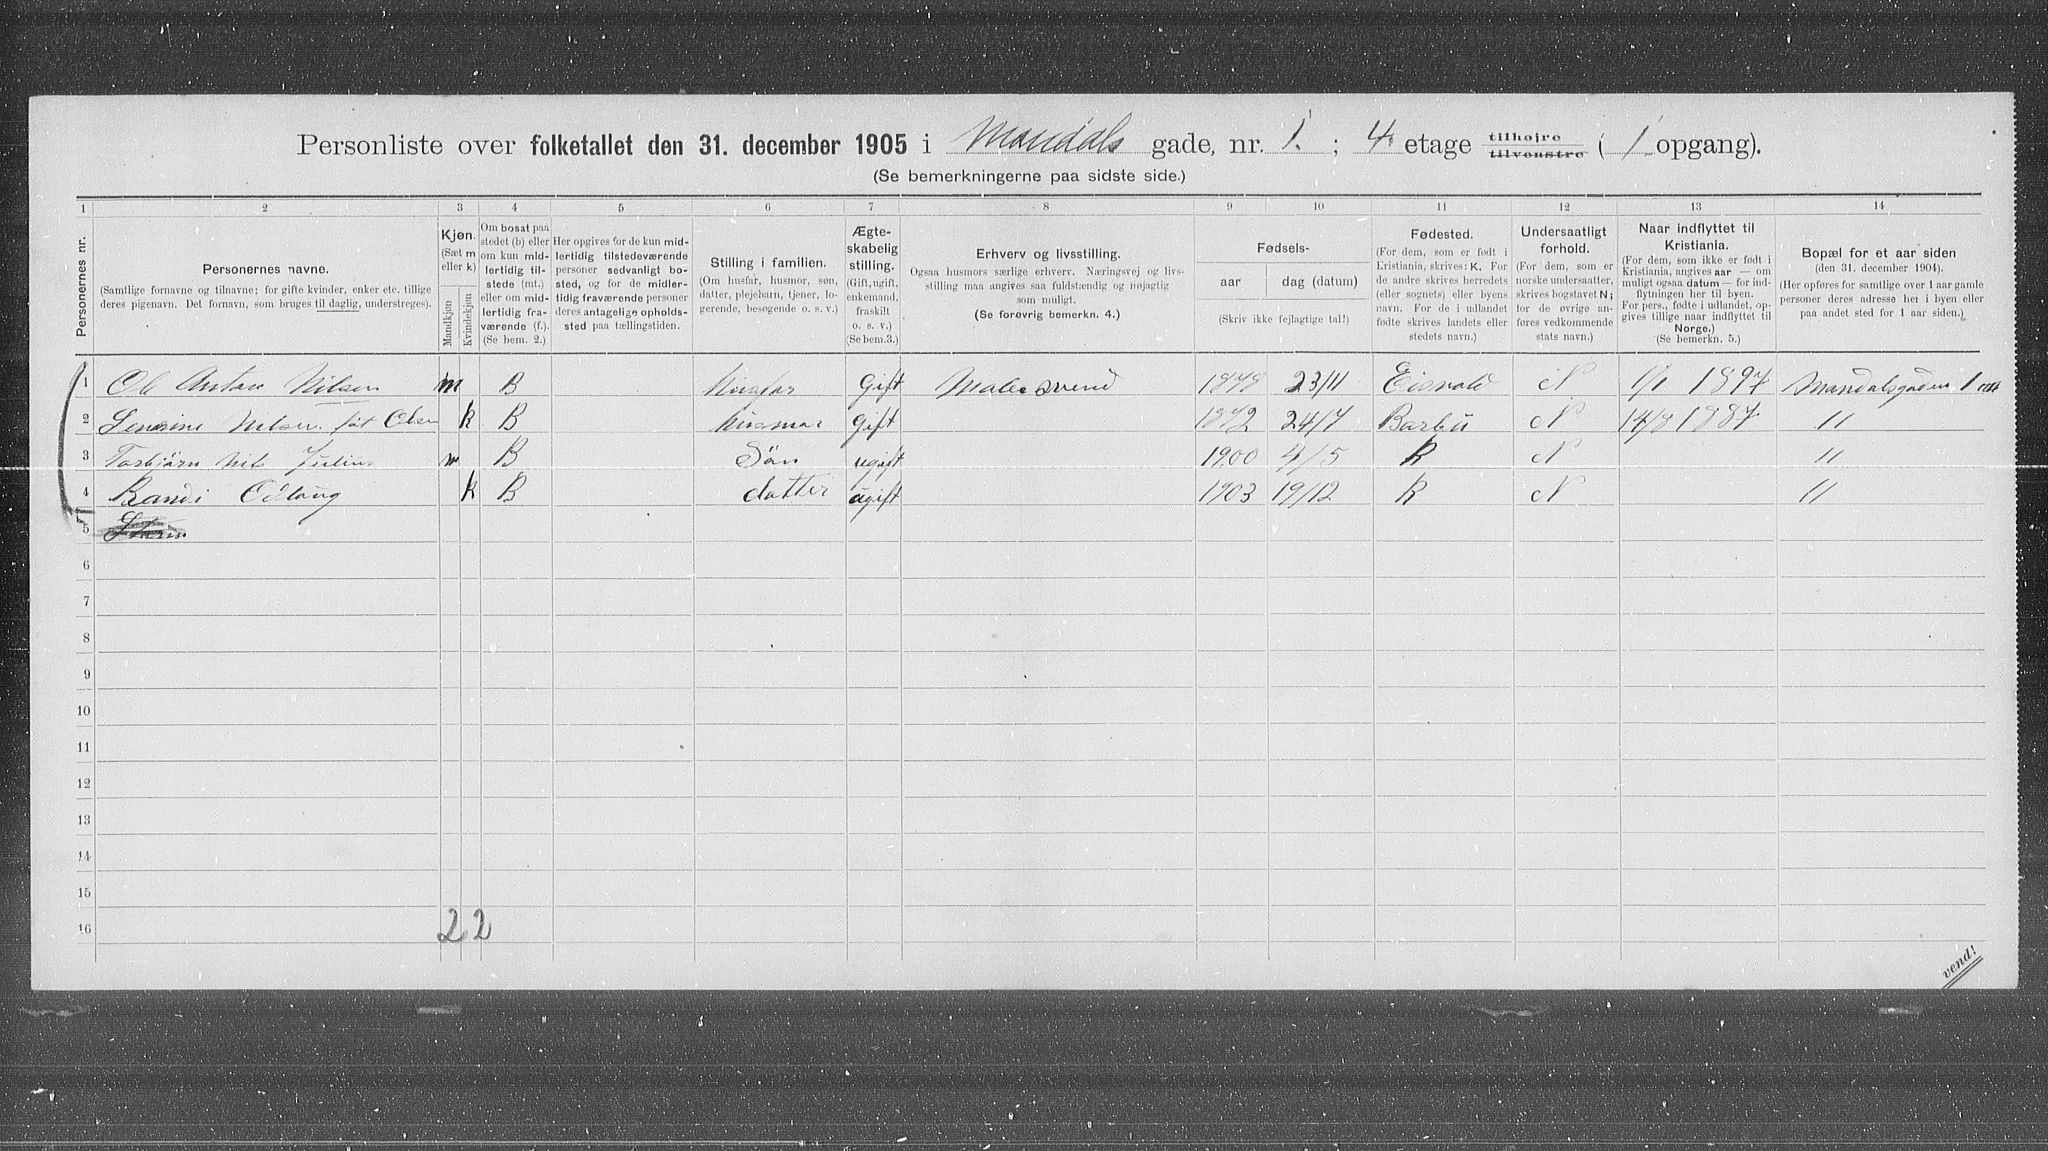 Personliste over folketallet den 31. december 1905 i Mandals gade, nr. 1. ; 4. etage tilhøjre tilvenstre ( 1 opgang).
(Se bemerkningerne paa sidste side.)
1 2 3 4 5 6 7 8 9 10 11 12 13 14
Personernes nr.
Personernes navne.
(Samtlige fornavne og tilnavne; for gifte kvinder, enker etc. tillige
deres pigenavn. Det fornavn, som bruges til daglig, understreges).
Kjøn.
(Sæt m
eller k)
Mandkjøn
Kvindekjøn
Om bosat paa
stedet (b) eller
om kun mid-
lertidig til-
stede (mt.)
eller om mid-
lertidig fra-
værende (f.).
(Se bem. 2.)
Her opgives for de kun mid-
lertidig tilstedeværende
personer sedvanligt bo-
sted, og for de midler-
tidig fraværende personer
deres antagelige opholds-
sted paa tællingstiden.
Stilling i familien.
(Om husfar, husmor, søn,
datter, plejebarn, tjener, lo-
gerende, besøgende o. s. v.)
Ægte-
skabelig
stilling.
(Gift, ugift,
enkemand,
fraskilt
o. s. v.)
(Se bem.3.)
Erhverv og livsstilling.
Ogsaa husmors særlige erhverv. Næringsvej og livs-
stilling maa angives saa fuldstændig og nøjagtig
som muligt.
(Se forøvrig bemerkn. 4.)
Fødsels-
aar
dag (datum)
(Skriv ikke fejlagtige tal!)
Fødested.
(For dem, som er født i
Kristiania, skrives: K. For
de andre skrives herredets
(eller sognets) eller byens
navn. For de i udlandet
fødte skrives landets eller
stedets navn.)
Undersaatligt
forhold.
(For dem, som er
norske undersaatter,
skrives bogstavet N;
for de øvrige an-
føres vedkommende
stats navn.)
Naar indflyttet til
Kristiania.
(For dem, som ikke er født i
Kristiania, angives aar — om
muligt ogsaa datum — for ind-
flytningen her til byen.
For pers., fødte i udlandet, op-
gives tillige naar indflyttet til
Norge.)
(Se bemerkn. 5.)
Bopæl for et aar siden
(den 31. december 1904).
(Her opføres for samtlige over 1 aar gamle
personer deres adresse her i byen eller
paa andet sted for 1 aar siden.)
1 Ole Anton Nilsen m B husfar Gift Malersvend 1878 23/11 Eisvold N 1/1 1897 Mandalsgaden 1
2 Severine Nilsen føt Olsen k B husmor gift 1872 24/7 Barbu N 14/8 1887 "
3 Torbjörn Nils Julius m B Sön ugift 1900 4/5 K N "
4 Randi Odlaug k B datter ugift 1903 19/12 K N "
5
6
7
8
9
10
11
12
13
14
15
16 2 2
vend!